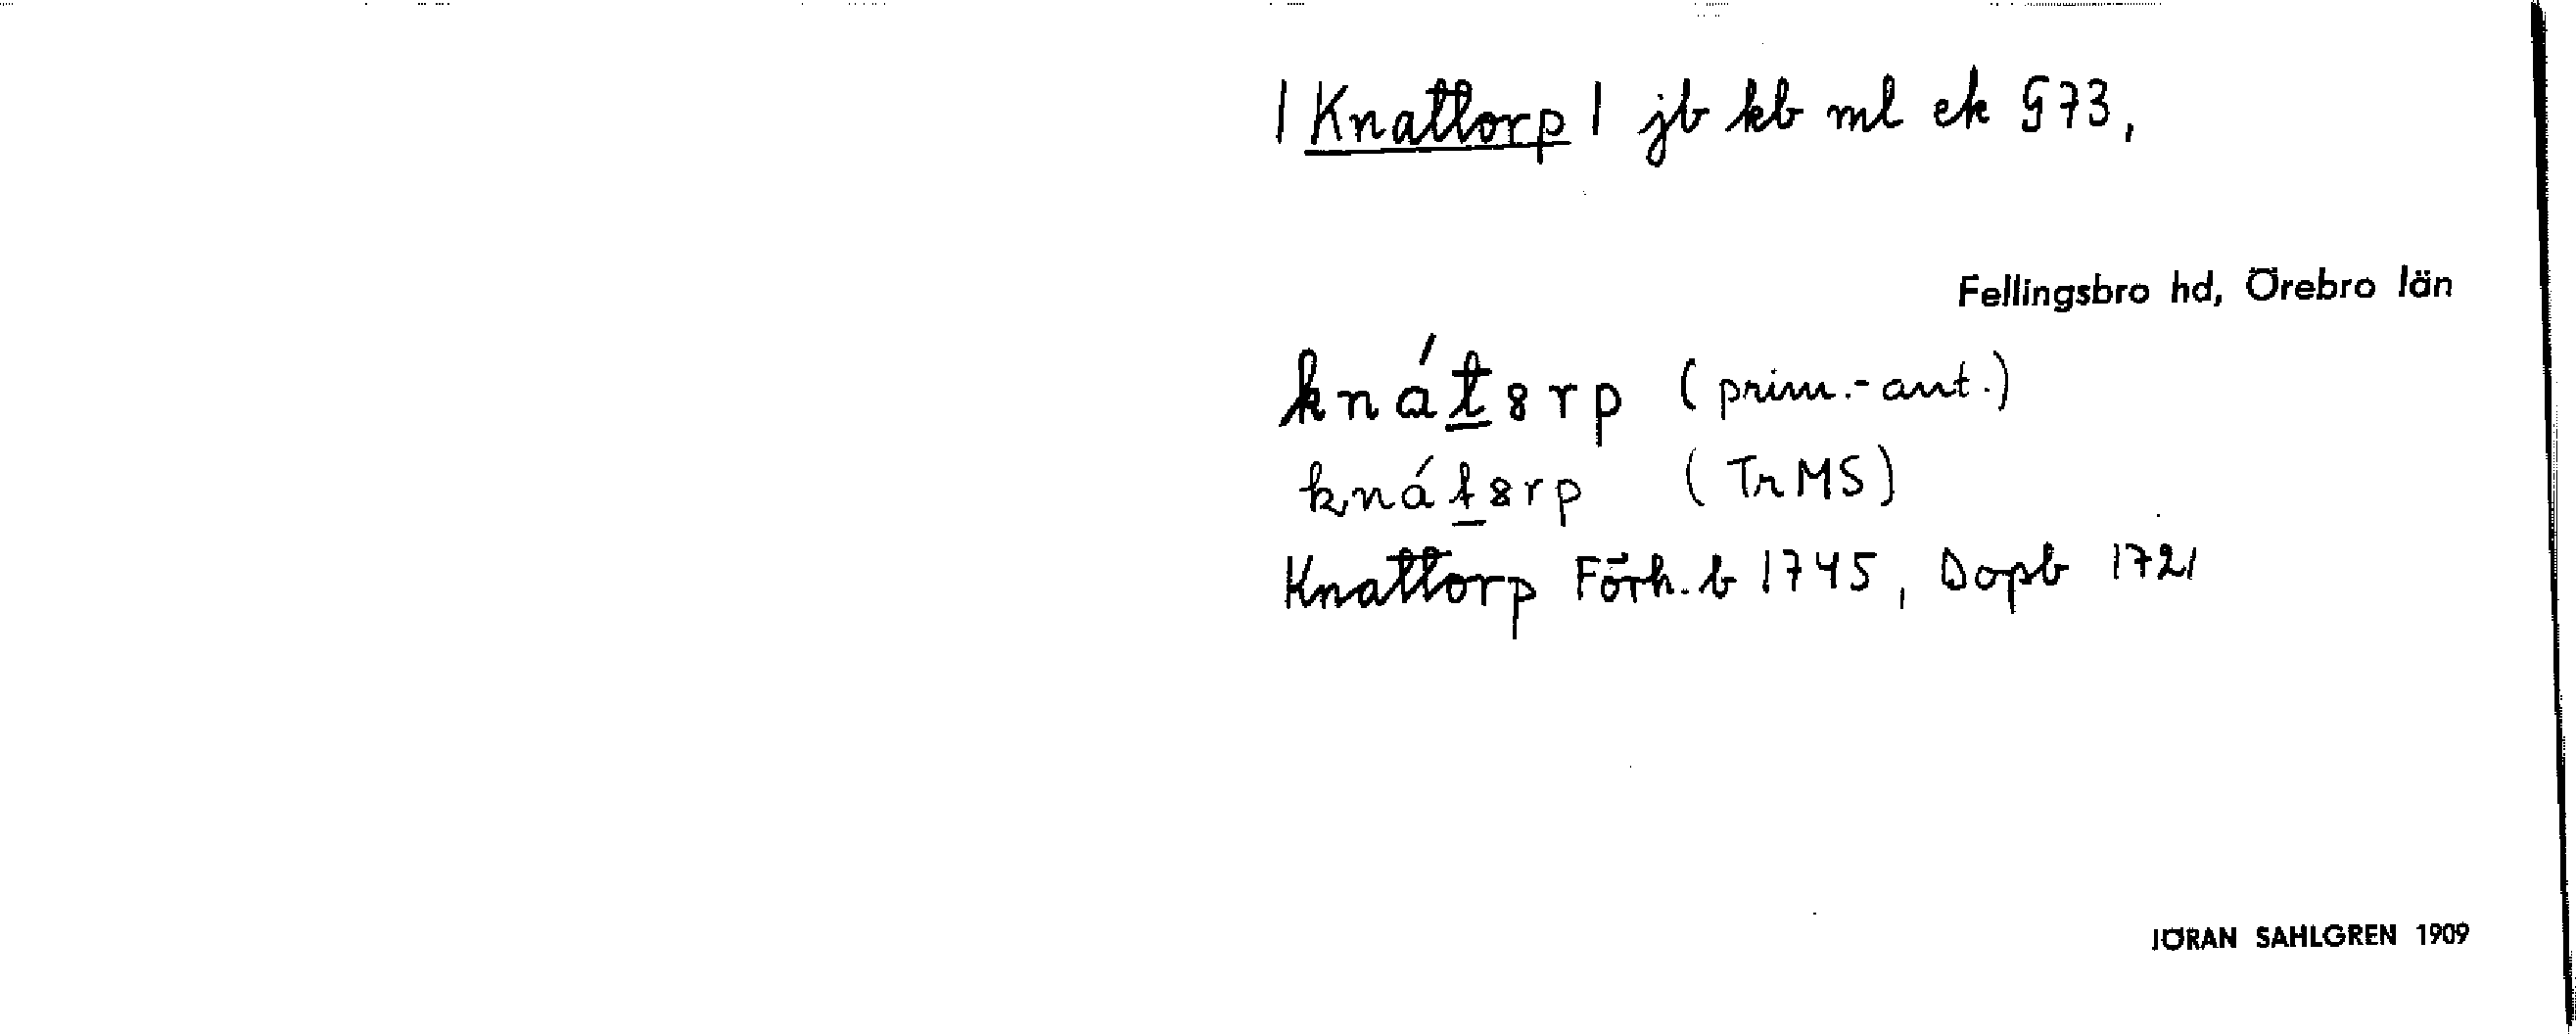 | Knattorp | jb kb ml ek G73,
Fellingsbro hd, Örebro län
knát8rp (prim.-ant.)
knát8rp (Tr MS)
Knattorp Förh.b 1745, Dopb 1721
JÖRAN SAHLGREN 1909